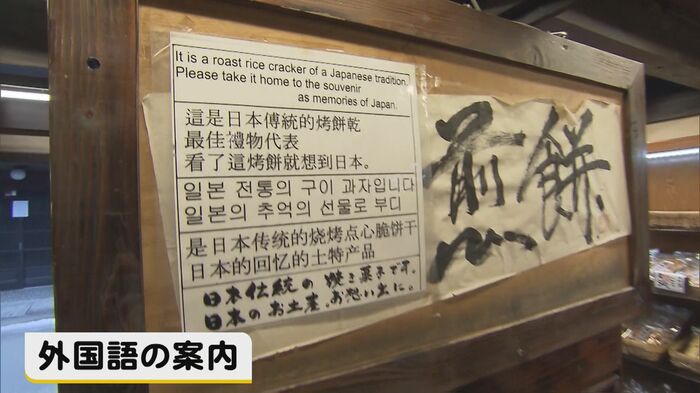 It is a roast rice cracker of a Japanese tradition.
Please take it home to the souvenir
as memories of Japan.
這是日本傳統的烤餅乾
最佳禮物代表
看了這烤餅就想到日本。
일본 전통의 구이 과자입니다
일본의 추억의 선물로 부디
是日本传统的烧烤点心脆饼干
日本的回忆的土特产品
日本伝統の焼き菓子です。
日本のお土産、お想い出に。
煎餅
外国語の案内